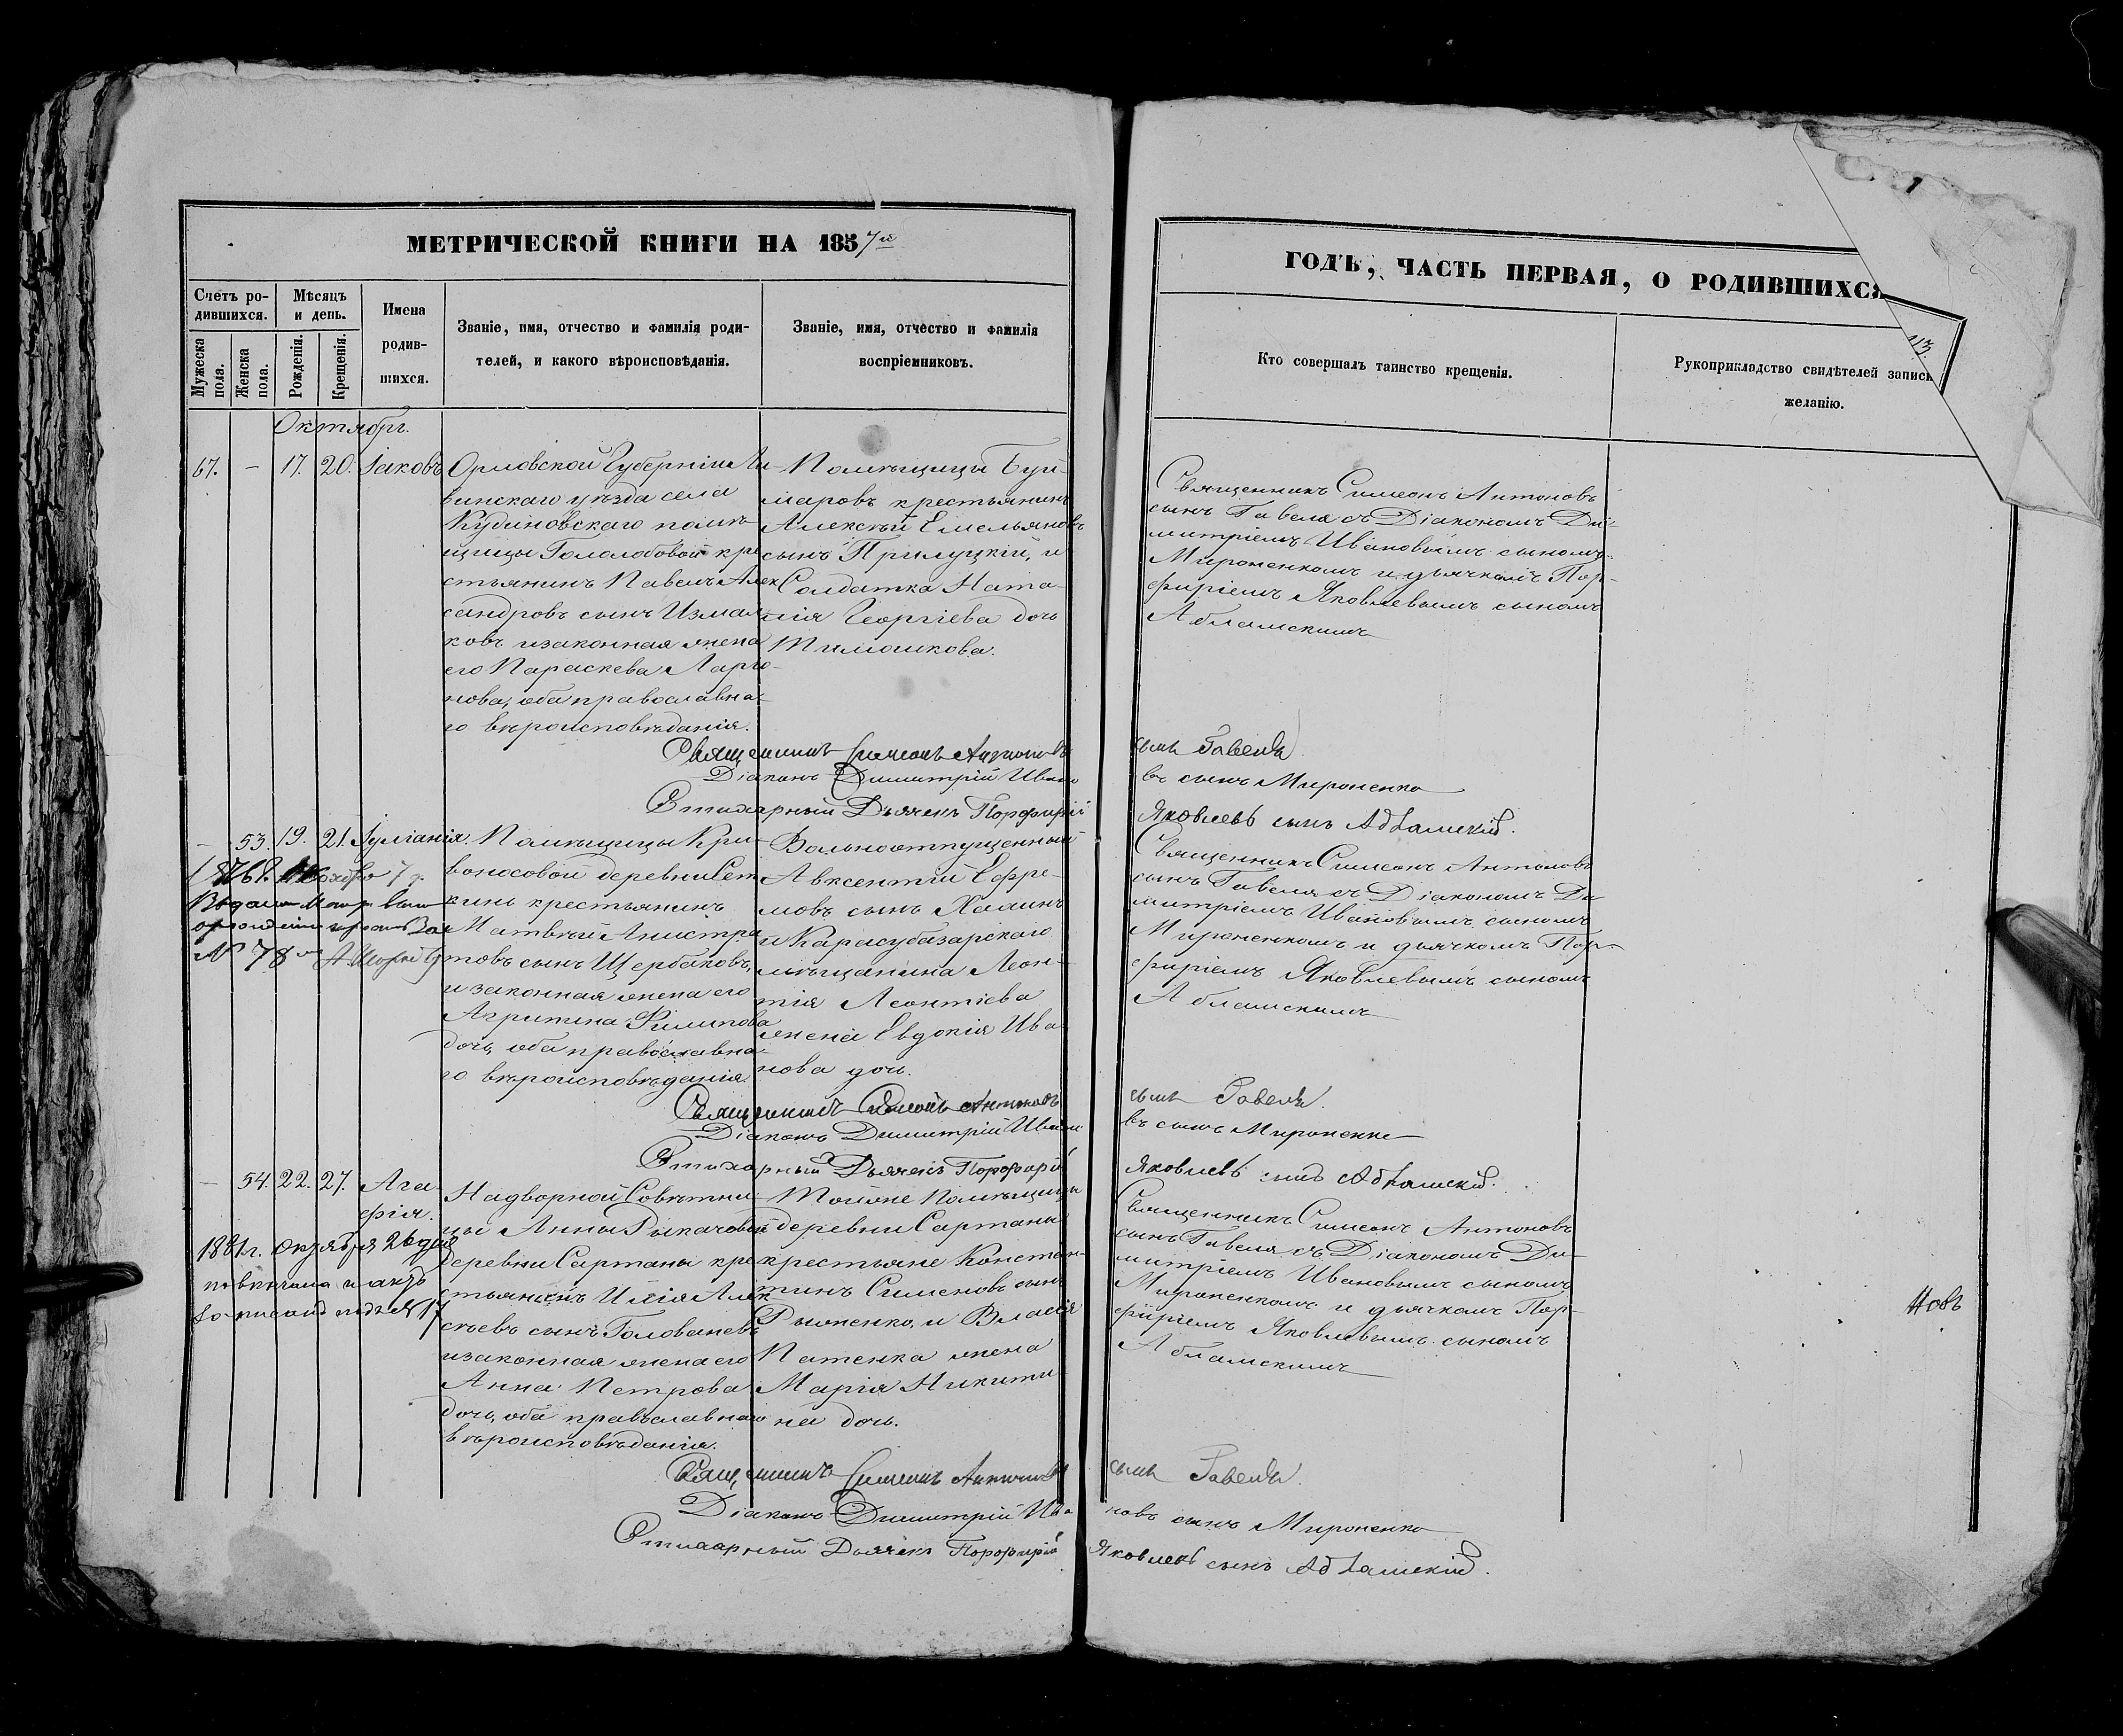 МЕТРИЧЕСКОЙ КНИГИ НА 1857й
Счетъ ро-
дившихся.
Мужеска
пола.
Женска
пола.
Мѣсяцъ
и день.
Рожденія.
Крещенія.
Имена
родив-
шихся.
Званіе, имя, отчество и фамилія роди-
телей, и какого вѣроисповѣданія.
Званіе, имя, отчество и фамилія
воспріемниковъ.
ГОДЪ, ЧАСТЬ ПЕРВАЯ, О РОДИВШИХСЯ
113.
Кто совершалъ таинство крещенія.
Рукоприкладство свидѣтелей записи
желанію.
Октябрь.
67. – 17. 20. Іаковъ
Орловской Губерніи Ли-
винскаго уѣзда села
Кудиновскаго помѣ-
щицы Гололобовой кре
стьянинъ Павелъ Алек
сандровъ сынъ Измал
ковъ и законная жена
его Параскева Ларіо-
нова, оба православна-
го вѣроисповѣданія.
Помѣщицы Буй-
маровъ крестьянинъ
Алексѣй Емельяновъ
сынъ Прилуцкій, и
Солдатка Ната-
лія Георгіева дочь
Тимошкова.
Священникъ Симеонъ Антоновъ
сынъ Гавеля съ Діакономъ Ди-
митріемъ Ивановымъ сыномъ
Мироненкомъ и дьячкомъ Пор-
фиріемъ Яковлевымъ сыномъ
Абламскимъ
Священникъ Симеонъ Антоновъ сынъ Гавеля
Діаконъ Димитрій Ивановъ сынъ Мироненко
Стихарный Дьячекъ Порфирій Яковлевъ сынъ Абламскій.
– 53. 19. 21. Іуліанія.
1876 г. Ноября 7 д.
№ 78
Помѣщицы Кри-
воносовой деревни Сет
кинь крестьянинъ
Матвѣй Анистра
товъ сынъ Щербаковъ,
и законная жена его
Агрипина Филипова
дочь, оба православна-
го вѣроисповѣданія.
Вольноотпущенный
Авксентій Ефре-
мовъ сынъ Халинъ
и Карасубазарскаго
мѣщанина Леон-
тія Леонтіева
жена Евдокія Ива-
нова дочь.
Священникъ Симеонъ Антоновъ
сынъ Гавеля съ Діакономъ Ди
митріемъ Ивановымъ сыномъ
Мироненкомъ и дьячкомъ Пор-
фиріемъ Яковлевымъ сыномъ
Абламскимъ
Священникъ Симеонъ Антоновъ сынъ Гавеля.
Діаконъ Димитрій Ивановъ сынъ Мироненко
Стихарный Дьячекъ Порфирій Яковлевъ сынъ Абламскій.
– 54. 22. 27. Ага-
фія.
1881 г. Октября 26 дня
повѣнчана и актъ
записанъ подъ № 17
Надворной Совѣтни-
цы Анны Рыкачовой
деревни Сартаны кре
стьянинъ Илія Алек
сѣевъ сынъ Голованевъ
и законная жена его
Анна Петрова
дочь, оба православнаго
вѣроисповѣданія.
Тойже Помѣщицы
деревни Сартаны
крестьяне Констан-
тинъ Сименовъ сынъ
Рыженко, и Власія
Патенка жена
Марія Никити-
на дочь.
Священникъ Симеонъ Антоновъ
сынъ Гавеля съ Діакономъ Ди-
митріемъ Ивановымъ сыномъ
Мироненкомъ и дьячкомъ Пор-
фиріемъ Яковлевымъ сыномъ
Абламскимъ
Священникъ Симеонъ Антоновъ сынъ Гавеля.
Діаконъ Димитрій Ивановъ сынъ Мироненко
Стихарный Дьячекъ Порфирій Яковлевъ сынъ Абламскій.
новъ